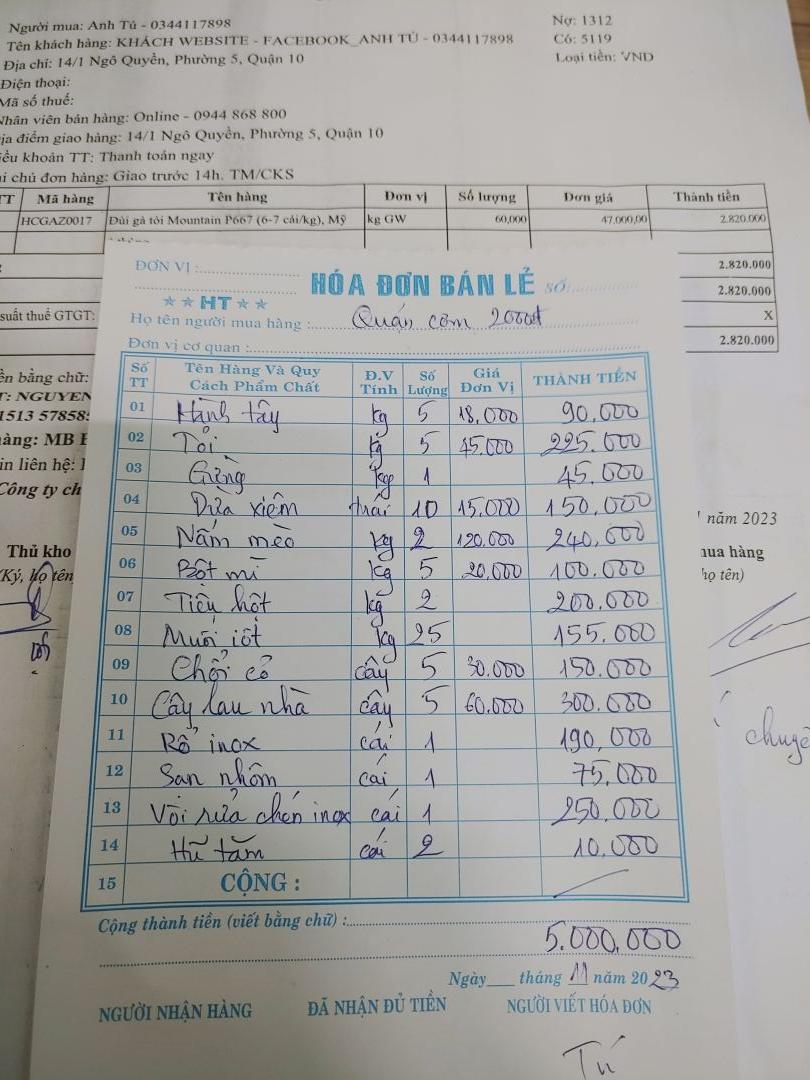 Người mua: Anh Tú - 0344117898
Nợ: 1312
Tên khách hàng: KHÁCH WEBSITE - FACEBOOK_ANH TÚ - 0344117898
Có: 5119
Địa chỉ: 14/1 Ngô Quyền, Phường 5, Quận 10
Loại tiền: VND
Điện thoại:
Mã số thuế:
Nhân viên bán hàng: Online - 0944 868 800
ịa điểm giao hàng: 14/1 Ngô Quyền, Phường 5, Quận 10
iều khoản TT: Thanh toán ngay
i chú đơn hàng: Giao trước 14h. TM/CKS
TT Mã hàng Tên hàng Đơn vị Số lượng Đơn giá Thành tiền
HCGAZ0017 Đùi gà tỏi Mountain P667 (6-7 cái/kg), Mỹ kg GW 60,000 47.000,00 2.820.000
2.820.000
2.820.000
suất thuế GTGT: X
2.820.000
ền bằng chữ:
T: NGUYEN
1513 57858
àng: MB
in liên hệ:
Công ty ch
năm 2023
Thủ kho
ua hàng
Ký, họ tên
họ tên)
chuyể
ĐƠN VỊ:
HÓA ĐƠN BÁN LẺ SỐ:
★ ★ HT ★ ★
Họ tên người mua hàng: Quán cơm 2000đ
Đơn vị cơ quan:
Số TT Tên Hàng Và Quy Cách Phẩm Chất Đ.V Tính Số Lượng Giá Đơn Vị THÀNH TIỀN
01 Hành tây kg 5 18,000 90,000
02 Tỏi kg 5 45.000 225.000
03 Gừng kg 1 45.000
04 Dừa xiêm trái 10 15.000 150,000
05 Nấm mèo kg 2 120.000 240,000
06 Bột mì kg 5 20,000 100.000
07 Tiêu hột kg 2 200.000
08 Muối iốt kg 25 155.000
09 Chổi cỏ cây 5 30.000 150.000
10 Cây lau nhà cây 5 60.000 300.000
11 Rổ inox cái 1 190,000
12 San nhôm cái 1 75,000
13 Vòi rửa chén inox cái 1 250.000
14 Hũ tăm cái 2 10.000
15 CỘNG :
Cộng thành tiền (viết bằng chữ) :
5.000,000
Ngày tháng 11 năm 2023
NGƯỜI NHẬN HÀNG ĐÃ NHẬN ĐỦ TIỀN NGƯỜI VIẾT HÓA ĐƠN
Tú